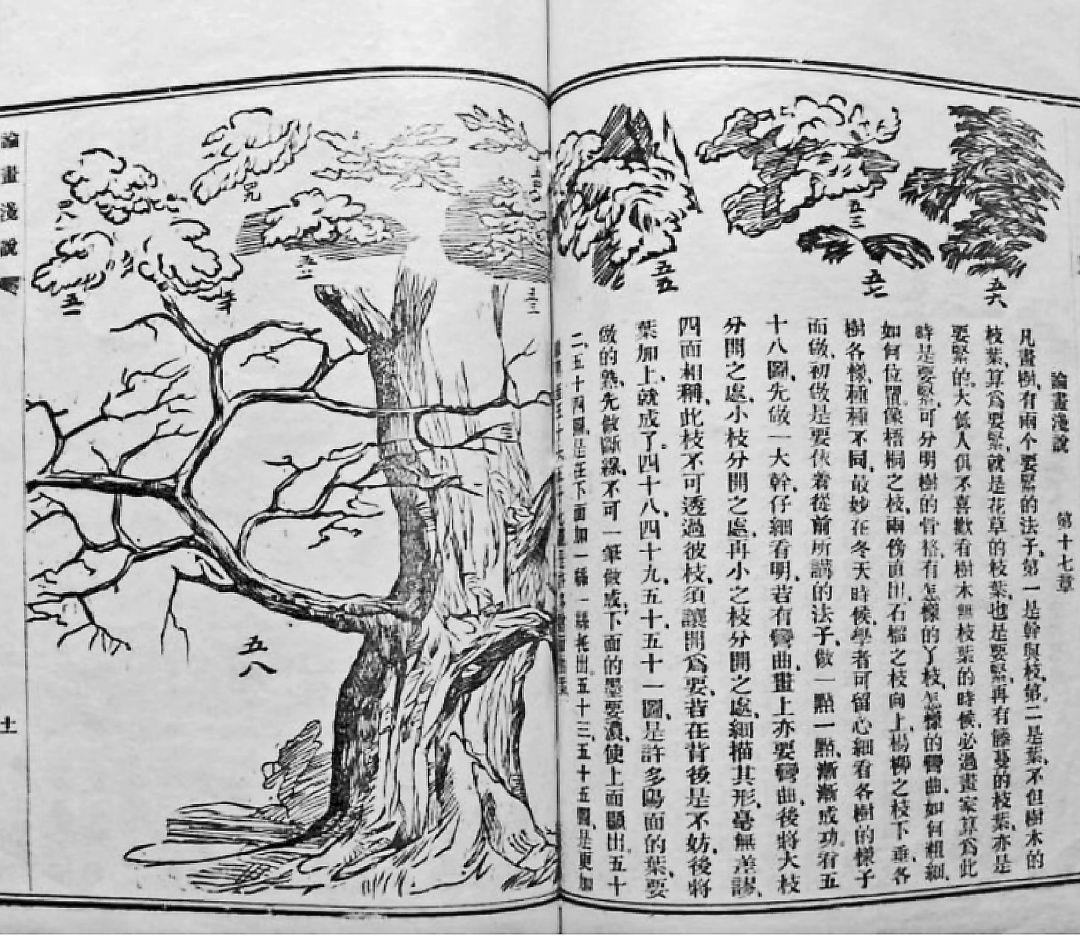 論畫淺說 第十七章
凡畫樹、有兩个要緊的法子、第一是幹與枝、第二是葉、不但樹木的
枝葉、算爲要緊、就是花草的枝葉、也是要緊、再有藤蔓的枝葉、亦是
要緊的、大概人俱不喜歡看樹木無枝葉的時候、必過畫家算爲此
時是要緊、可分明樹的骨格、有怎樣的丫枝、怎樣的彎曲、如何粗細、
如何位置、像梧桐之枝、兩傍直出、石榴之枝向上、楊柳之枝下垂、各
樹各樣、種種不同、最妙在冬天時候、學者可留心細看各樹的樣子
而做、初做是要依着從前所講的法子、做一點一點漸漸成功、有五
十八圖、先做一大幹、仔細看明、若有彎曲、畫上亦要彎曲、後將大枝
分開之處、小枝分開之處、再小之枝分開之處、細描其形、毫無差謬、
四面相稱、此枝不可透過彼枝、須讓開爲要、若在背後是不妨、後將
葉加上、就成了、四十八四十九五十五十一圖、是許多陽面的葉、要
做的熟、先做斷線、不可一筆做成、下面的墨要濃、使上面顯出、五十
二、五十四圖、是在下面加一縭一縭托出、五十三、五十五圖、是更加
五六
五七
五三
五五
論畫淺說
四九
四八
五二
五十
五一
五三
五八
十一